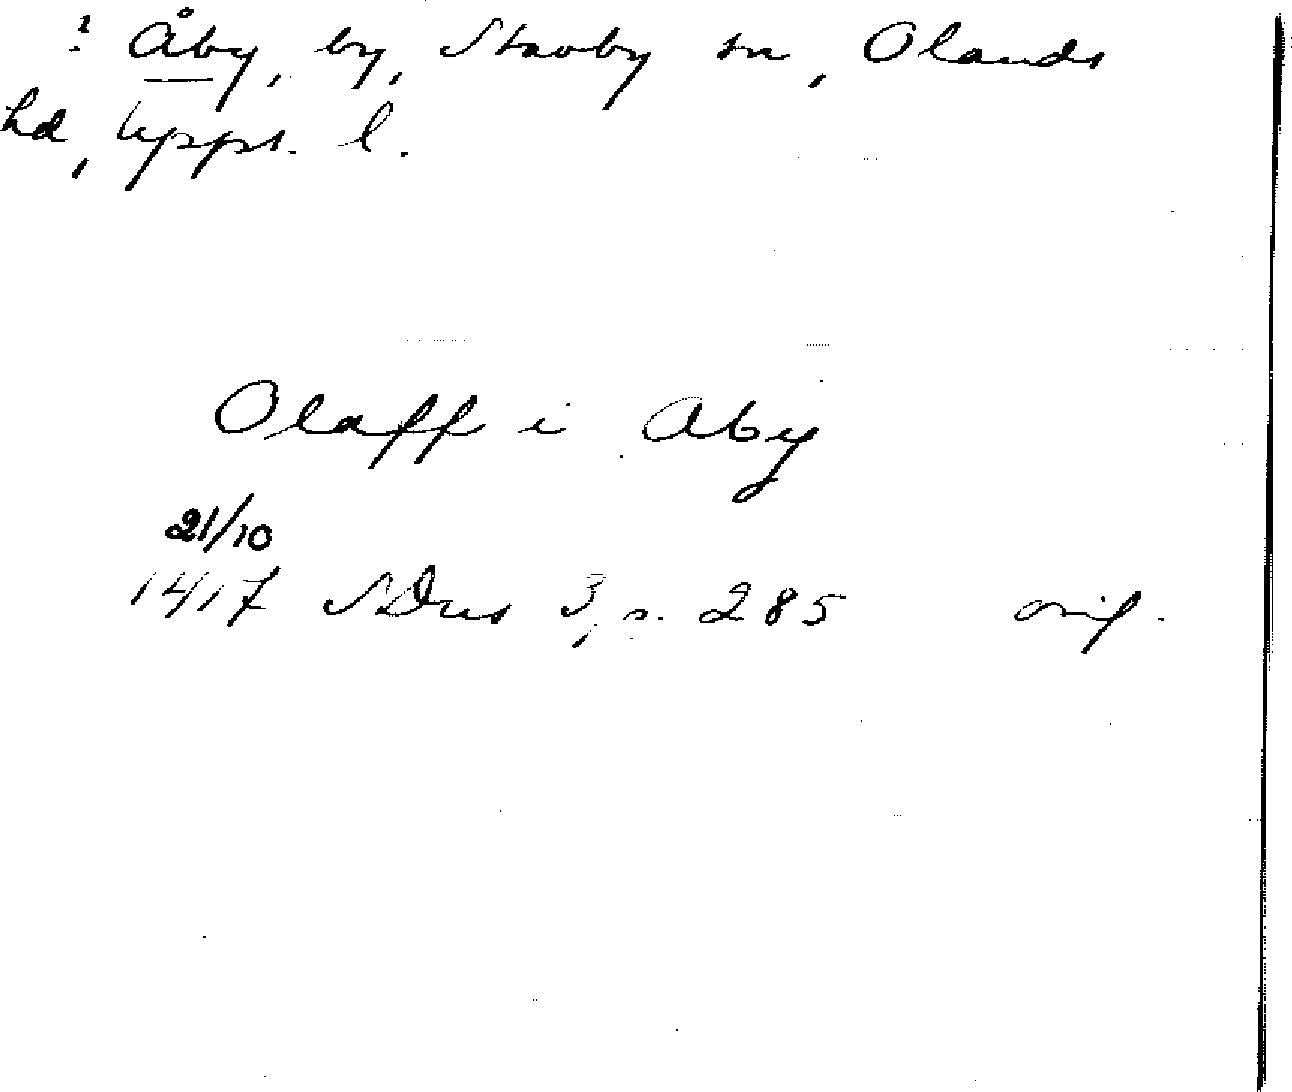 ? Åby, by, Stavby sn, Olands
hd, Upps. l.
Olaff i Aby
21/10
1417 SDns 3, s. 285 orig.